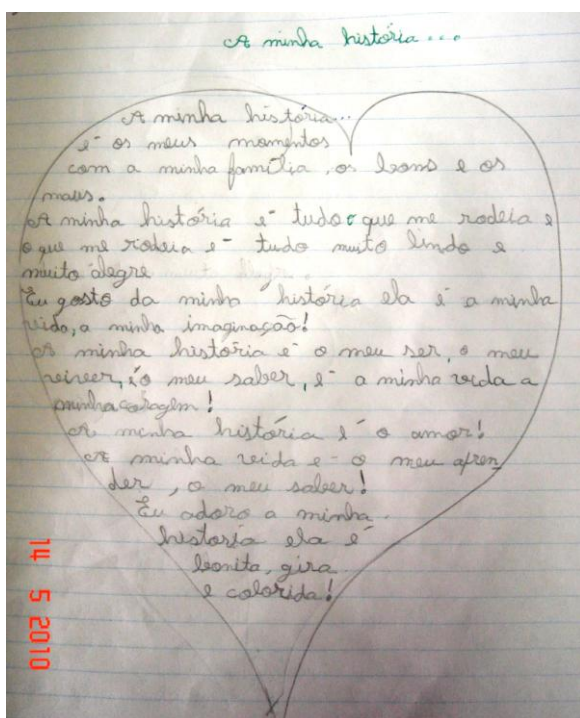 A minha história...
A minha história...
é os meus momentos
com a minha família, os bons e os
maus.
A minha história é tudo o que me rodeia e
o que me rodeia é tudo muito lindo e
muito alegre
Eu gosto da minha história ela é a minha
vida, a minha imaginação!
A minha história é o meu ser, o meu
viver, é o meu saber, é a minha vida a
minha coragem!
A minha história é o amor!
A minha vida é o meu apren
der, o meu saber!
Eu adoro a minha
historia ela é
bonita, gira
e colorida!
14 5 2010